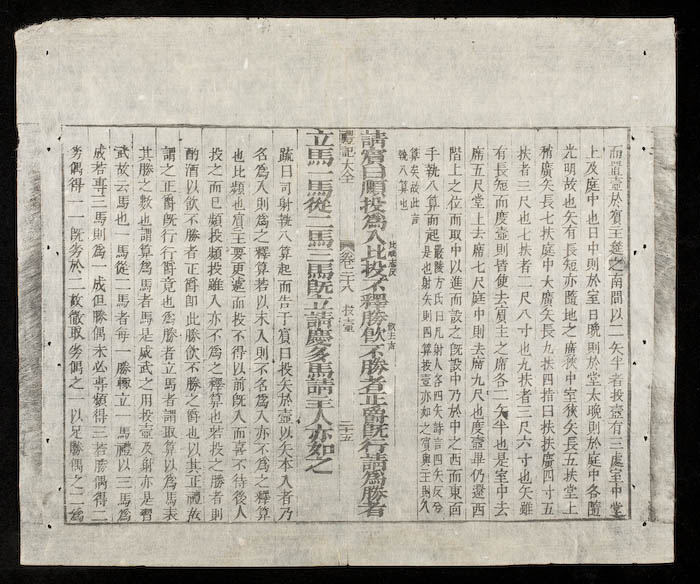 而置壺於賓主筵之南間以二矢半者投壺有三處室中堂
上及庭中也日中則於室日晚則於堂太晚則於庭中各隨
光明故也矢有長短亦隨地之廣狹室中狹矢長五扶堂上
稍廣矢長七扶庭中大廣矢長九扶四指曰扶扶廣四寸五
扶者二尺也七扶者二尺八寸也九扶者三尺六寸也矢雖
有長短而度壺則皆使去賓主之席各二矢半也是室中去
席五尺堂上去席七尺庭中則去席九尺也度壺畢仍還西
階上之位而取中以進而設之既設中乃於中之西而東面
手執八算而起
嚴陵方氏曰凡射人各四矢詩言四矢反兮
是也射矢則四算投壺亦如之賓與主則八
算矣故此言
執八算也
請賓曰順投為入比投不釋勝飲不勝者正爵既行請為勝者
比毗志反
飲去聲
禮記大全
卷之二十八 投壺
二十五
立馬一馬從二馬三馬既立請慶多馬請主人亦如之
疏曰司射執八算起而告于賓曰投矢於壺以矢本入者乃
名為入則為之釋算若以末入則不名為入亦不為之釋算
也比頻也賓主要更遞而投不得以前既入而喜不待後人
投之而已頻投頻投雖入亦不為之釋算也若投之勝者則
酌酒以飲不勝者正爵即此勝飲不勝之爵也以其正禮故
謂之正爵既行行爵竟也為勝者立馬者謂取算以為馬表
其勝之數也謂算為馬者馬是威武之用投壺及射亦是習
武故云馬也一馬從二馬者每一勝輒立一馬禮以三馬為
成若專三馬則為一成但勝偶未必專頻得三若勝偶得二
劣偶得一一既劣於二故徹取劣偶之一以足勝偶之二為